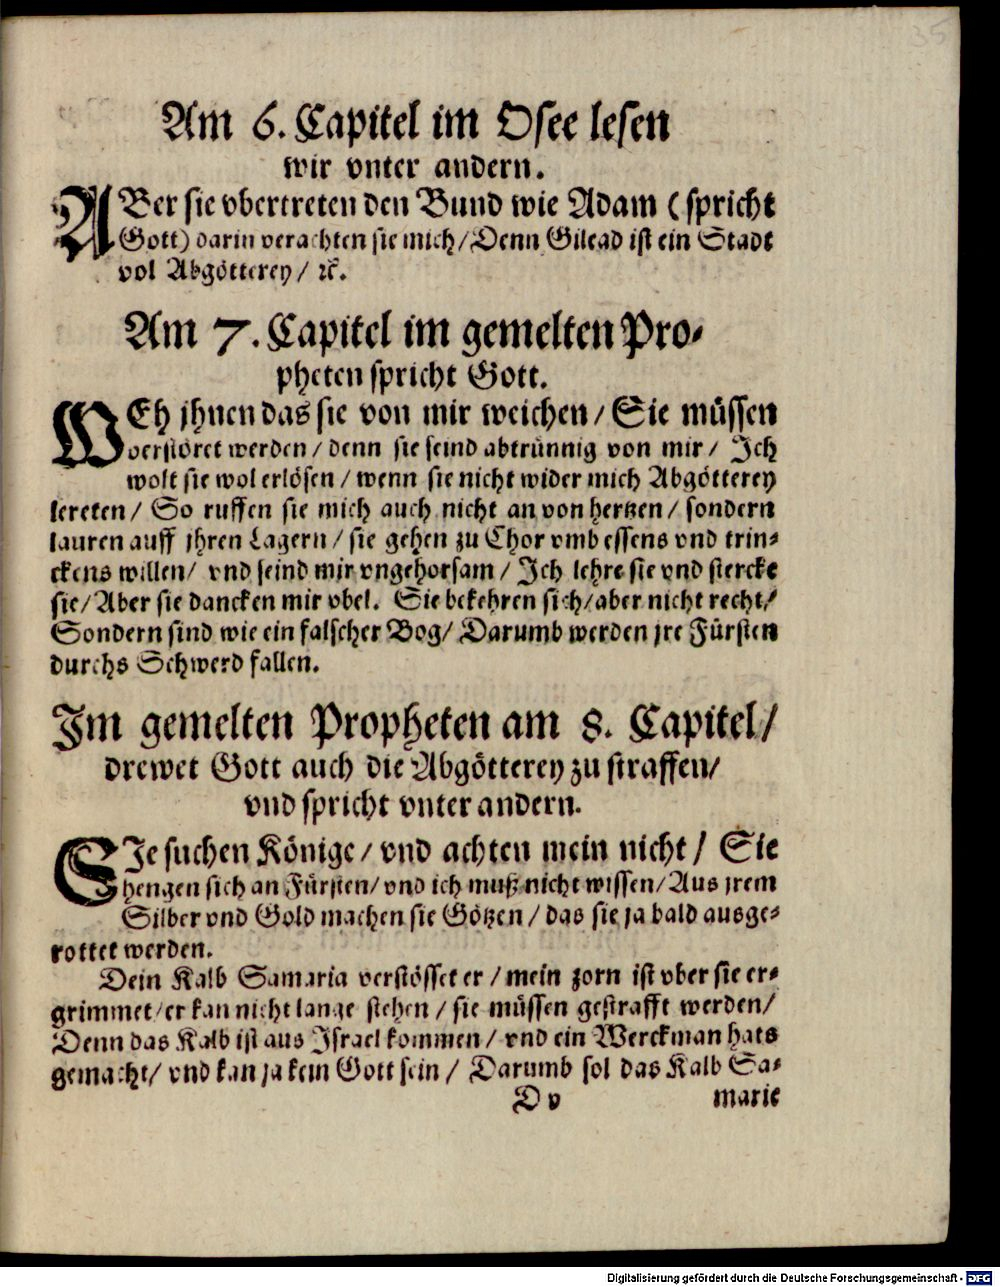 35
Am 6. Capitel im Osee lesen
wir vnter andern.
ABer sie vbertreten den Bund wie Adam (spricht
Gott) darin verachten sie mich/Denn Gilead ist ein Stadt
vol Abgötterey/ ꝛc.
Am 7. Capitel im gemelten Pro-
pheten spricht Gott.
WEh jhnen das sie von mir weichen/ Sie müssen
verstöret werden/ denn sie seind abtrünnig von mir/ Ich
wolt sie wol erlösen/ wenn sie nicht wider mich Abgötterey
lereten/ So ruffen sie mich auch nicht an von hertzen/ sondern
lauren auff jhren Lagern/ sie gehen zu Chor vmb essens vnd trin-
ckens willen/ vnd seind mir vngehorsam/ Ich lehre sie vnd stercke
sie/Aber sie dancken mir vbel. Sie bekehren sich/aber nicht recht/
Sondern sind wie ein falscher Bog/ Darumb werden jre Fürsten
durchs Schwerd fallen.
Im gemelten Propheten am 8. Capitel/
drewet Gott auch die Abgötterey zu straffen/
vnd spricht vnter andern.
SIe suchen Könige/ vnd achten mein nicht/ Sie
hengen sich an Fürsten/ vnd ich muß nicht wissen/Aus jrem
Silber vnd Gold machen sie Götzen/ das sie ja bald ausge-
rottet werden.
Dein Kalb Samaria verstösset er/ mein zorn ist vber sie er-
grimmet/er kan nicht lange stehen/ sie müssen gestrafft werden/
Denn das Kalb ist aus Israel kommen/ vnd ein Werckman hats
gemacht/ vnd kan ja kein Gott sein/ Darumb sol das Kalb Sa-
D v marie
Digitalisierung gefördert durch die Deutsche Forschungsgemeinschaft - DFG